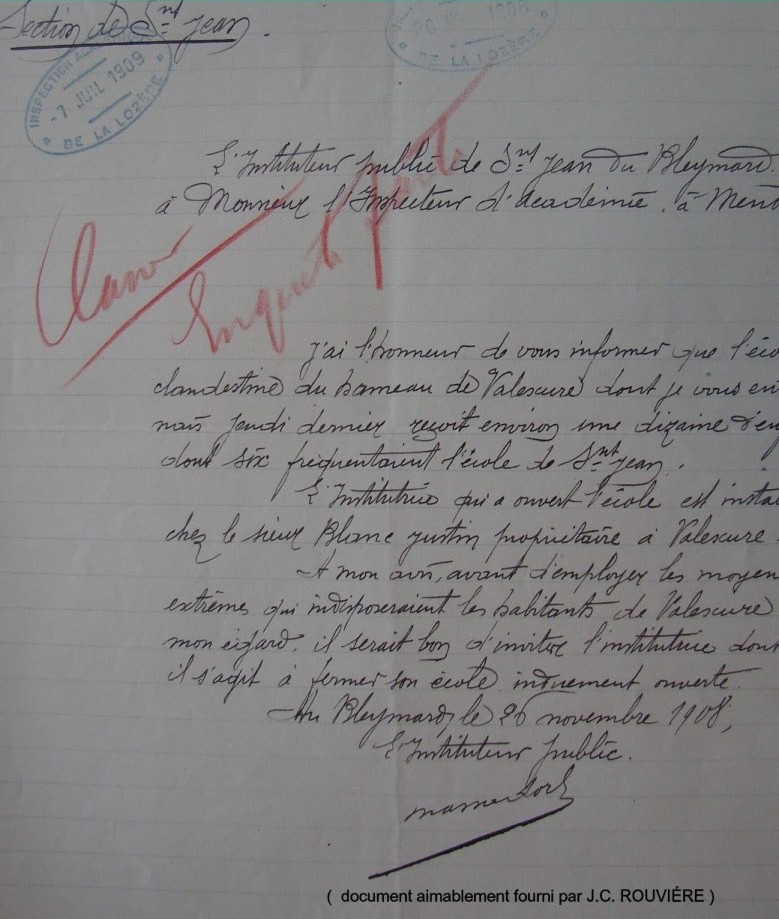 Section de Snt Jean.
INSPECTION
-7 JUIL 1909
DE LA LOZÈRE
26 1908
DE LA LOZÈRE
L'Instituteur public de Snt Jean du Bleymard.
à Monsieur l'Inspecteur d'Académie. à Mend
Classer
Enquête faite
J'ai l'honneur de vous informer que l'éco
clandestine du hameau de Valescure dont je vous en
nais jeudi dernier reçoit environ une dizaine d'en
dont six fréquentaient l'école de Snt Jean.
L'Institutrice qui a ouvert l'école est instal
chez le sieur Blanc Justin propriétaire à Valescure.
A mon avis, avant d'employer les moyen
extrêmes qui indisposeraient les habitants de Valescure
mon égard, il serait bon d'inviter l'institutrice dont
il s'agit à fermer son école indûment ouverte.
Au Bleymard, le 26 novembre 1908,
L'Instituteur public.
( document aimablement fourni par J.C. ROUVIÉRE )